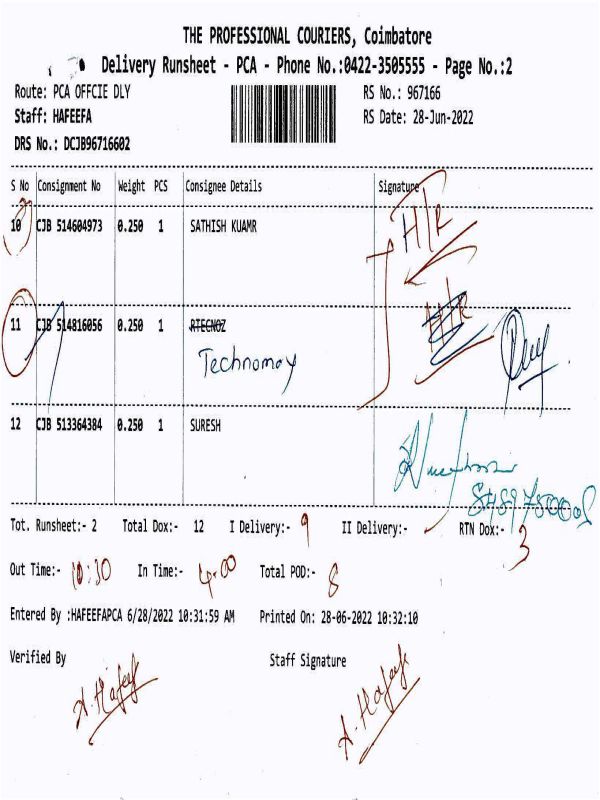 THE PROFESSIONAL COURIERS, Coimbatore
Delivery Runsheet - PCA - Phone No.:0422-3505555 - Page No.:2
Route: PCA OFFCIE DLY RS No.: 967166
Staff: HAFEEFA RS Date: 28-Jun-2022
DRS No.: DCJB96716602
S No Consignment No Weight PCS Consignee Details Signature
10 CJB 514604973 0.250 1 SATHISH KUAMR H/R
11 CJB 514816056 0.250 1 RTECNOZ H/R
Technomay
12 CJB 513364384 0.250 1 SURESH
Tot. Runsheet:- 2 Total Dox:- 12 I Delivery:- 9 II Delivery:- RTN Dox:- 3
Out Time:- 10:30 In Time:- 4.00 Total POD:- 8
Entered By :HAFEEFAPCA 6/28/2022 10:31:59 AM Printed On: 28-06-2022 10:32:10
Verified By Staff Signature
A. Hafeefa A. Hafeefa